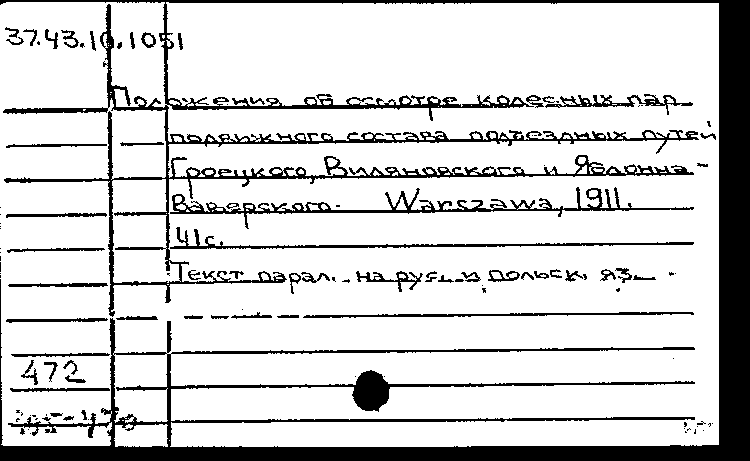 37.43.10.1051
Положения об осмотре колесных пар
подвижного состава подъездных путей
Гроецкого, Виляновского и Яблонна-
Ваверского. Warszawa, 1911.
41с.
Текст парал. на рус. и польск. яз.
472